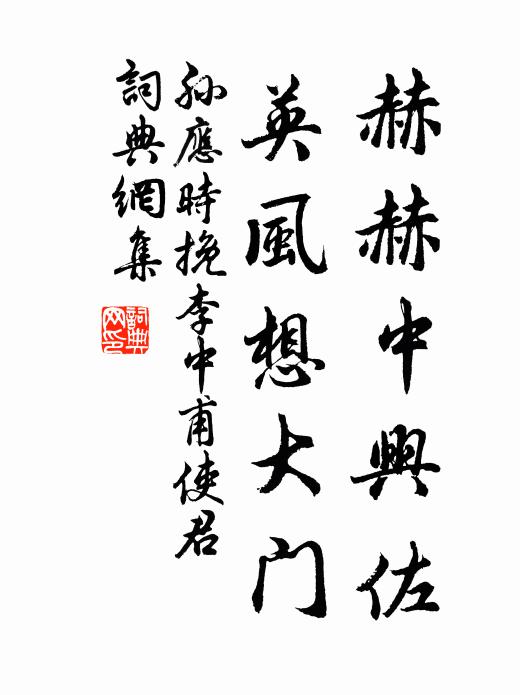 赫赫中興佐
英風想大门
孙應時挽李中甫使君
詞典網集
詞典网印